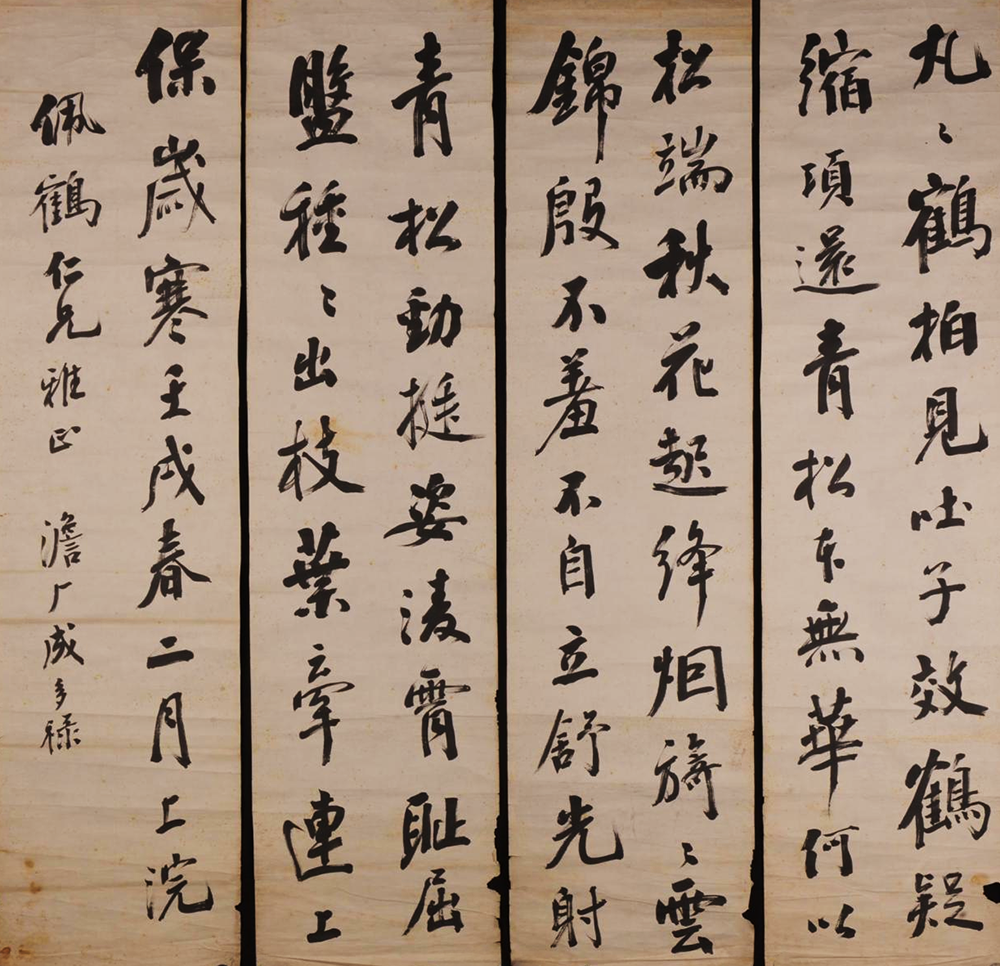 丸〻鶴柏見吐子效鶴疑
縮項還青松本無華何以
松端秋花起絳烟旖〻雲
錦殷不羞不自立舒光射
青松勁挺姿淩霄耻屈
盤種〻出枝葉牽連上
保歲寒壬戌春二月上浣
佩鶴仁兄雅正 澹厂成多祿